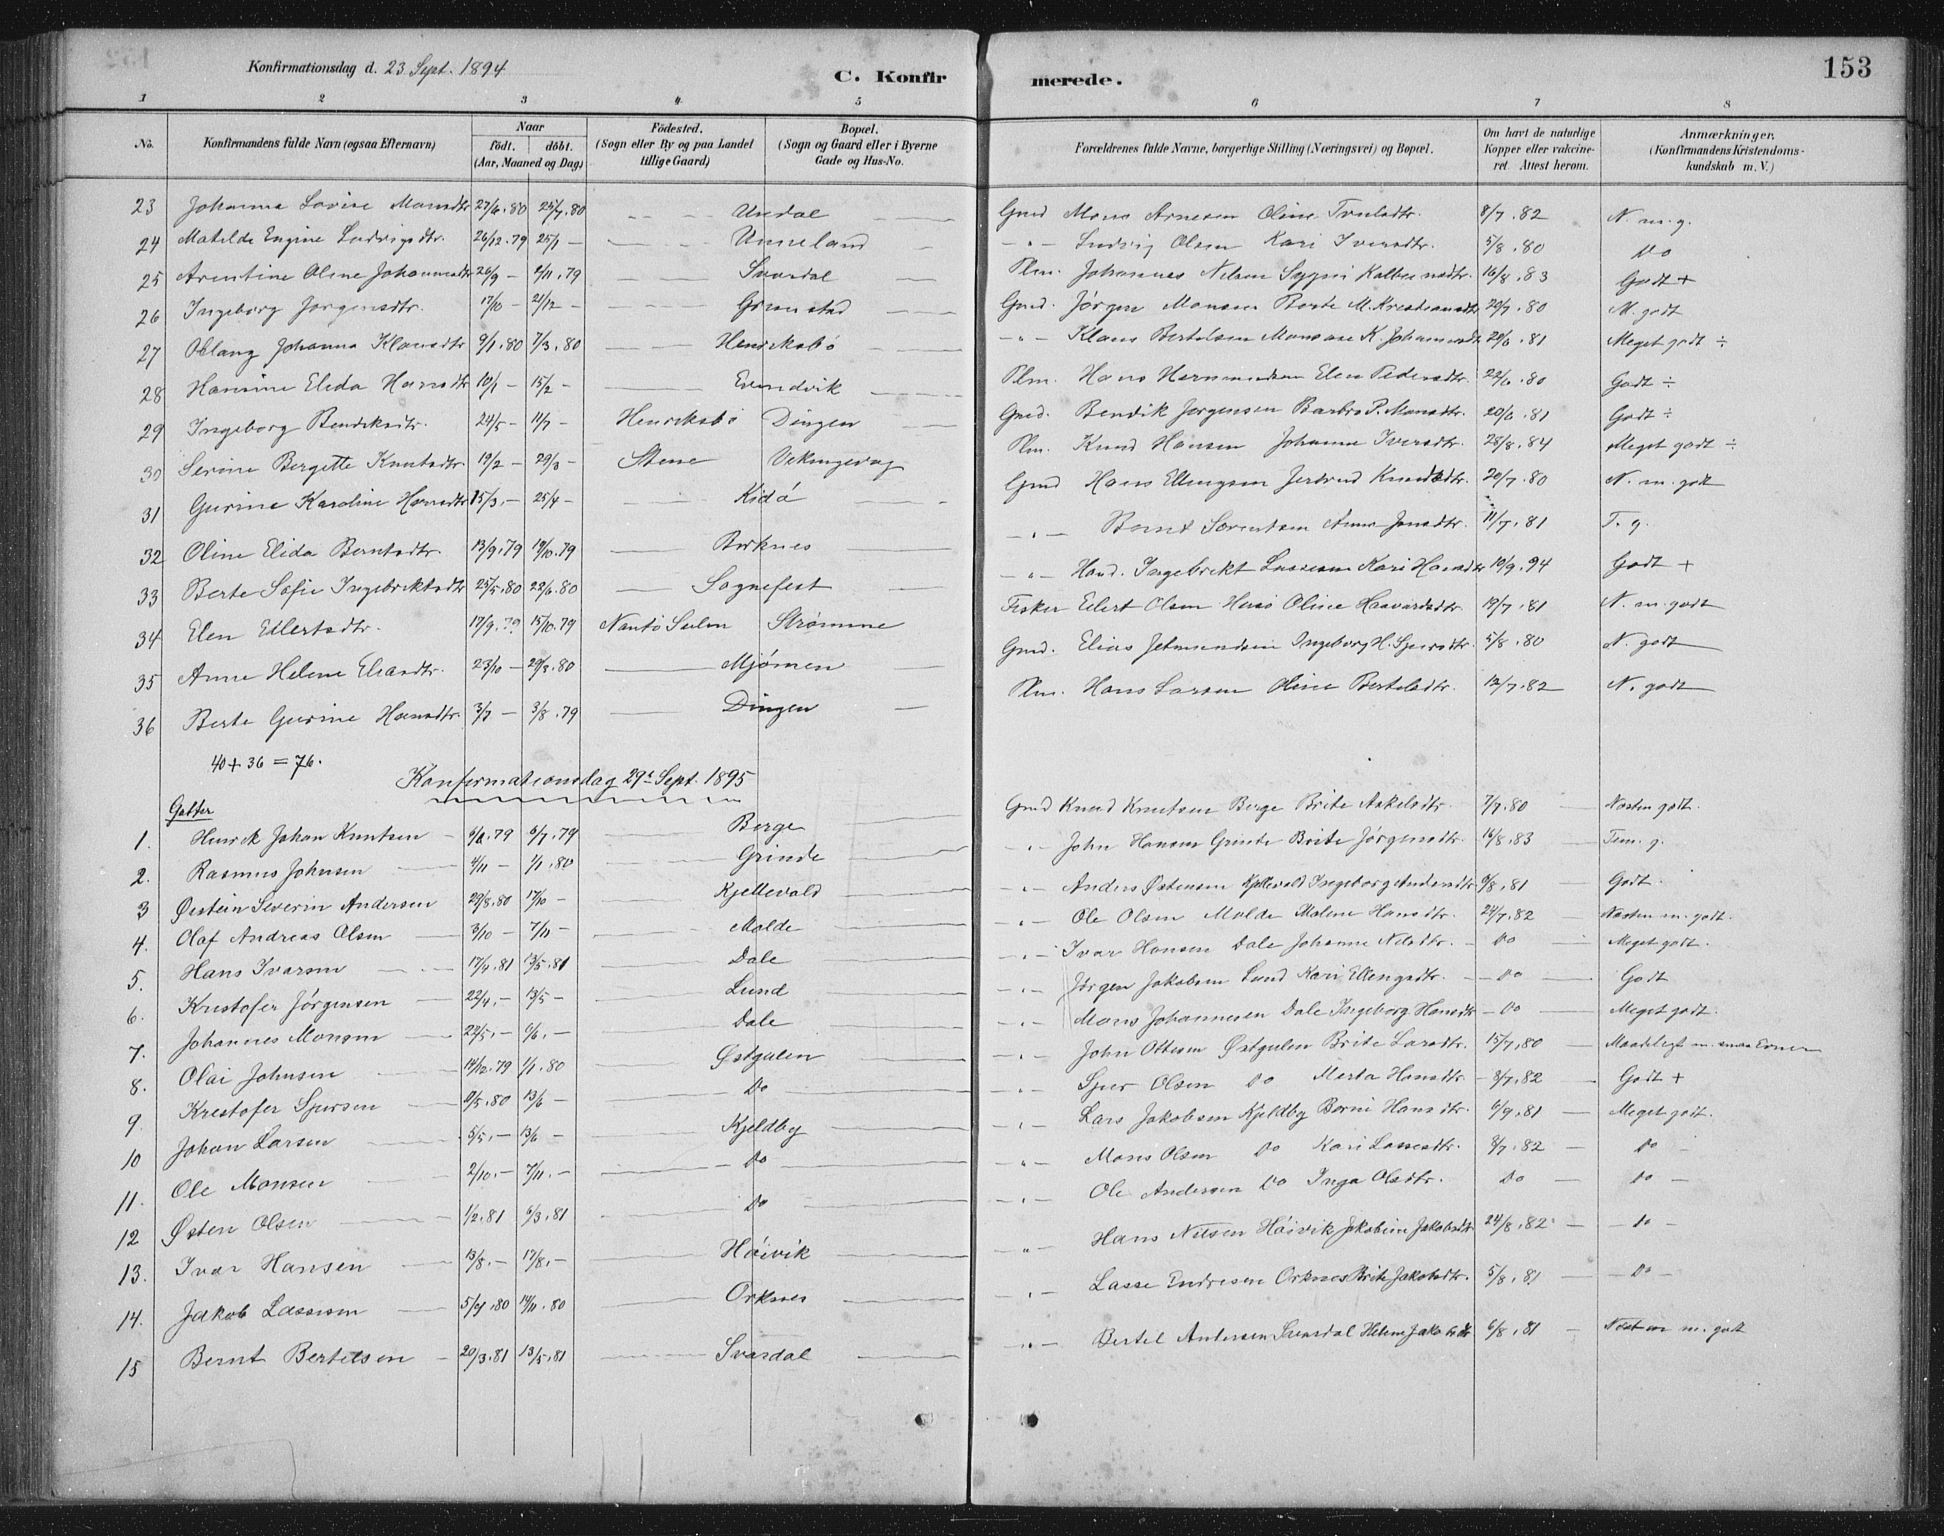 Konfirmationsdag d. 23 Sept. 1894
C. Konfir merede. 153
1 2 3 4 5 6 7 8
No. Konfirmandens fulde Navn (ogsaa Efternavn) Naar födt. döbt. (Aar, Maaned og Dag) Födested. (Sogn eller By og paa Landet tillige Gaard) Bopæl. (Sogn og Gaard eller i Byerne Gade og Hus-No. Forældrenes fulde Navne, borgerlige Stilling (Næringsvei) og Bopæl. Om havt de naturlige Kopper eller vakcineret. Attest herom. Anmærkninger. (Konfirmandens Kristendomskundskab m. V.)
23 Johanna Lovise Monsdtr 27/6.80 25/7.80 Undal Gmd Mons Arnesen Oline 8/7.82 N m. g.
24 Matilde Engine Ludvigsdtr. 26/12.79 25/1 — Unneland — " — Ludvig Olsen Kari Iversdtr. 5/8.80 Do
25 Arentine Oline Johannesdtr 26/9 — 2/11.79 Svardal Plm. Johannes Nilsen 16/8.83 Godt +
26 Ingeborg Jørgensdtr. 17/10 — 21/12 — Grinstad Gmd. Jørgen Monsen Berte M. Kristiansdtr 29/7.80 N. godt
27 Johanna Klausdtr 9/1.80 7/3.80 Henriksbø — " — Klaus Bertelsen K. Johannesdtr 29/6.81 Meget godt ÷
28 Hansine Elida Hansdtr 10/1 — 15/2 — Evindvik Plm. Hans Hermundsen Elen Pedersdtr. 22/6.80 Godt ÷
29 Ingeborg Bendiksdtr. 24/5 — 11/7 — Henriksbø Dingen Gmd. Bendik Jørgensen Barbro P. Monsdtr. 20/6.81 Godt ÷
30 Serine Bergitte Knutsdtr. 19/2 — 29/3 — Stene Vikingevaag Plm. Knud Hansen Johanne Iversdtr. 28/8.84 Meget godt ÷
31 Gurine Karoline Hansdtr 15/3. — 25/4 — Kidø Gmd Hans Ellingsen Jertrud Knudsdtr. 20/7.80 N. m. godt
32 Oline Elida Berntsdtr. 13/9.79 19/10.79 Birknes — " — Bernt Sørensen Anna Jonsdtr. 11/7.81 T. g.
33 Berte Sofie Ingebriktsdtr 25/5.80 22/6.80 Sognefest — " — Hand. Ingebrikt Lassesen Kari Hansdtr 10/9.94 Godt +
34 Elen Eilertsdtr. 17/9.79 15/10.79 Nantø Sulen Strømme Fisker Eilert Olsen Oline Haavardsdtr. 19/7.81 N. m. godt
35 Anne Helene Eliasdtr. 23/10 — 29/3.80 Mjømen Gmd. Elias Jetmundsen Ingeborg H. Sjursdtr. 5/8.80 N. godt
36 Berte Gurine Hansdtr. 3/7 — 3/8.79 Dingen Plm. Hans Larsen Oline Bertelsdtr. 12/7.82 N. godt
40 + 36 = 76.
Konfirmationsdag 29de Sept. 1895
Gutter
1. Henrik Johan Knutsen 6/7.79 Berge Gmd Knud Knutsen Berge Brite Askelsdtr. 7/7.80 Næsten godt.
2. Rasmus Johnsen 4/11 — 1/1.80 Grinde — " — John Hansen Grinde Brite Jørgensdtr. 16/8.83 Tem. g.
3 Øistein Severin Andersen 29/8.80 17/10 — Kjellevold — " — Anders Østensen Kjellevold Ingeborg Andersdtr 9/8.81 Godt.
4. Olaf Andreas Olsen 3/10 — 7/11 — Molde — " — Ole Olsen Molde Malene Hansdtr. 24/7.82 Næsten m. godt.
5. Hans Ivarsen 17/4.81 13/5.81 Dale — " — Ivar Hansen Dale Johanne Nilsdtr. — Do — Meget godt.
6. Kristofer Jørgensen 22/4. — 13/5 — Lund — " — Jørgen Jakobsen Lund Kari Ellingsdtr. — Do — Godt
7. Johannes Monsen 22/5. — 6/6. — Dale — " — Mons Johannesen Dale Ingeborg Hansdtr — Do — Meget godt.
8. Olai Johnsen 14/12.79 1/1.80 Østgulen — " — John Ottesen Østgulen Brite Larsdtr. 15/7.80 Maadeligt m. smaa Evner
9. Kristofer Sjursen 9/5.80 13/6 — Do — " — Sjur Olsen Do Marta Hansdtr — 8/7.82 Godt +
10 Johan Larsen 5/5. — 13/6 — Kjeldby — " — Lars Jakobsen Kjeldby Berni Hansdtr. 6/9.81 Meget godt.
11. Ole Monsen 2/10. — 7/11. — Do " — Mons Olsen Do Kari Lassesdtr. 8/7.82 — Do —
12 Østen Olsen 1/2.81 6/3.81 Do — " — Ole Andersen Do Inga Olsdtr. Do — Do —
13. Ivar Hansen 13/8. — 17/8. — Høivik " — Hans Nilsen Høivik Jakobine Jakobsdtr 24/8.82. — — Do —
14. Jakob Lassesen 5/9.80 14/11.80 Orknes " Lasse Endresen Orknes Brite Jakobsdtr. 5/8.81 — — Do —
15 Bernt Bertelsen — 20/3.81 13/5.81 Svardal " — Bertel Andersen Svardal Helene Jakobsdtr 6/8.81 — Næsten m. godt